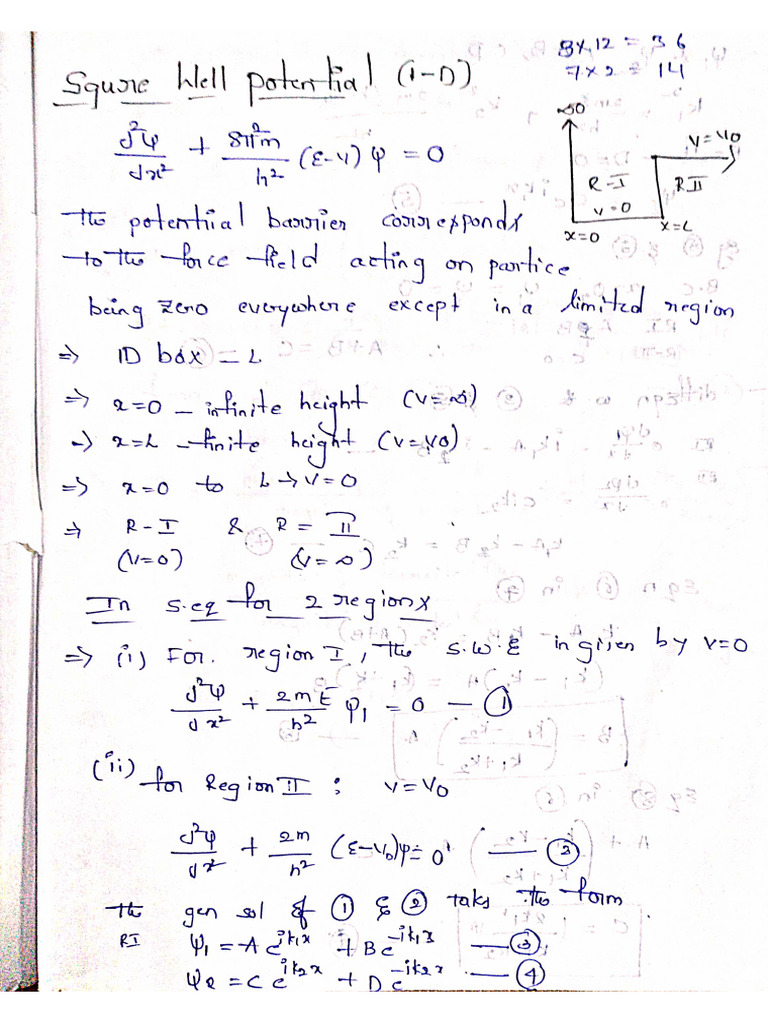 Squre Well potential (1-D)
3x12 = 36
7x2 = 14
d²ψ/dx² + 8π²m/h² (ε-V) ψ = 0
∞
V = V0
R-I
R II
V=0
x=0
x=L
The potential barrier corresponds
to the force field acting on partice
being zero everywhere except in a limited region
⇒ 1D box = L
⇒ x=0 - infinite height (V=∞)
→ x=L - finite height (V=V0)
⇒ x=0 to L → V=0
⇒ R-I & R = II
(V=0) (V=∞)
In s.eq for 2 region
⇒ (i) For region I, the s.w.E in given by V=0
d²ψ/dx² + 2mE/h² ψ1 = 0 — ①
(ii) for Region II : V=V0
d²ψ/dx² + 2m/h² (ε-V0)ψ = 0 — ②
The gen sol of ① & ② taks the form
RI ψ1 = A e^ik1x + B e^-ik1x — ③
ψ2 = C e^ik2x + D e^-ik2x — ④